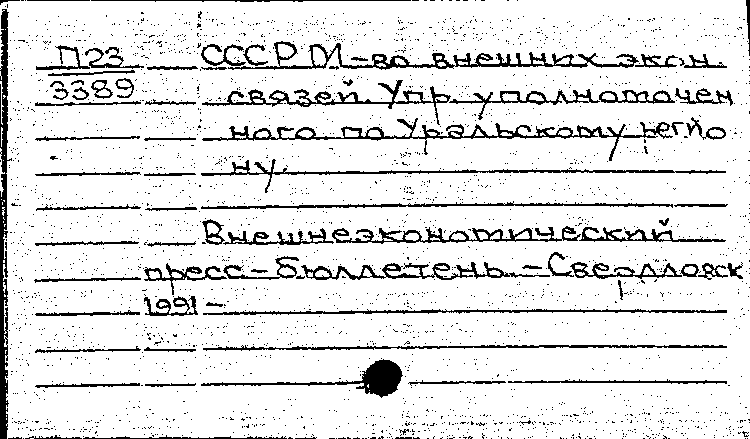 П23 СССР М-во внешних экон.
3389 связей. Упр. уполномочен
ного по Уральскому регио
ну.
Внешнеэкономический
пресс-бюллетень. - Свердловск
1991 -